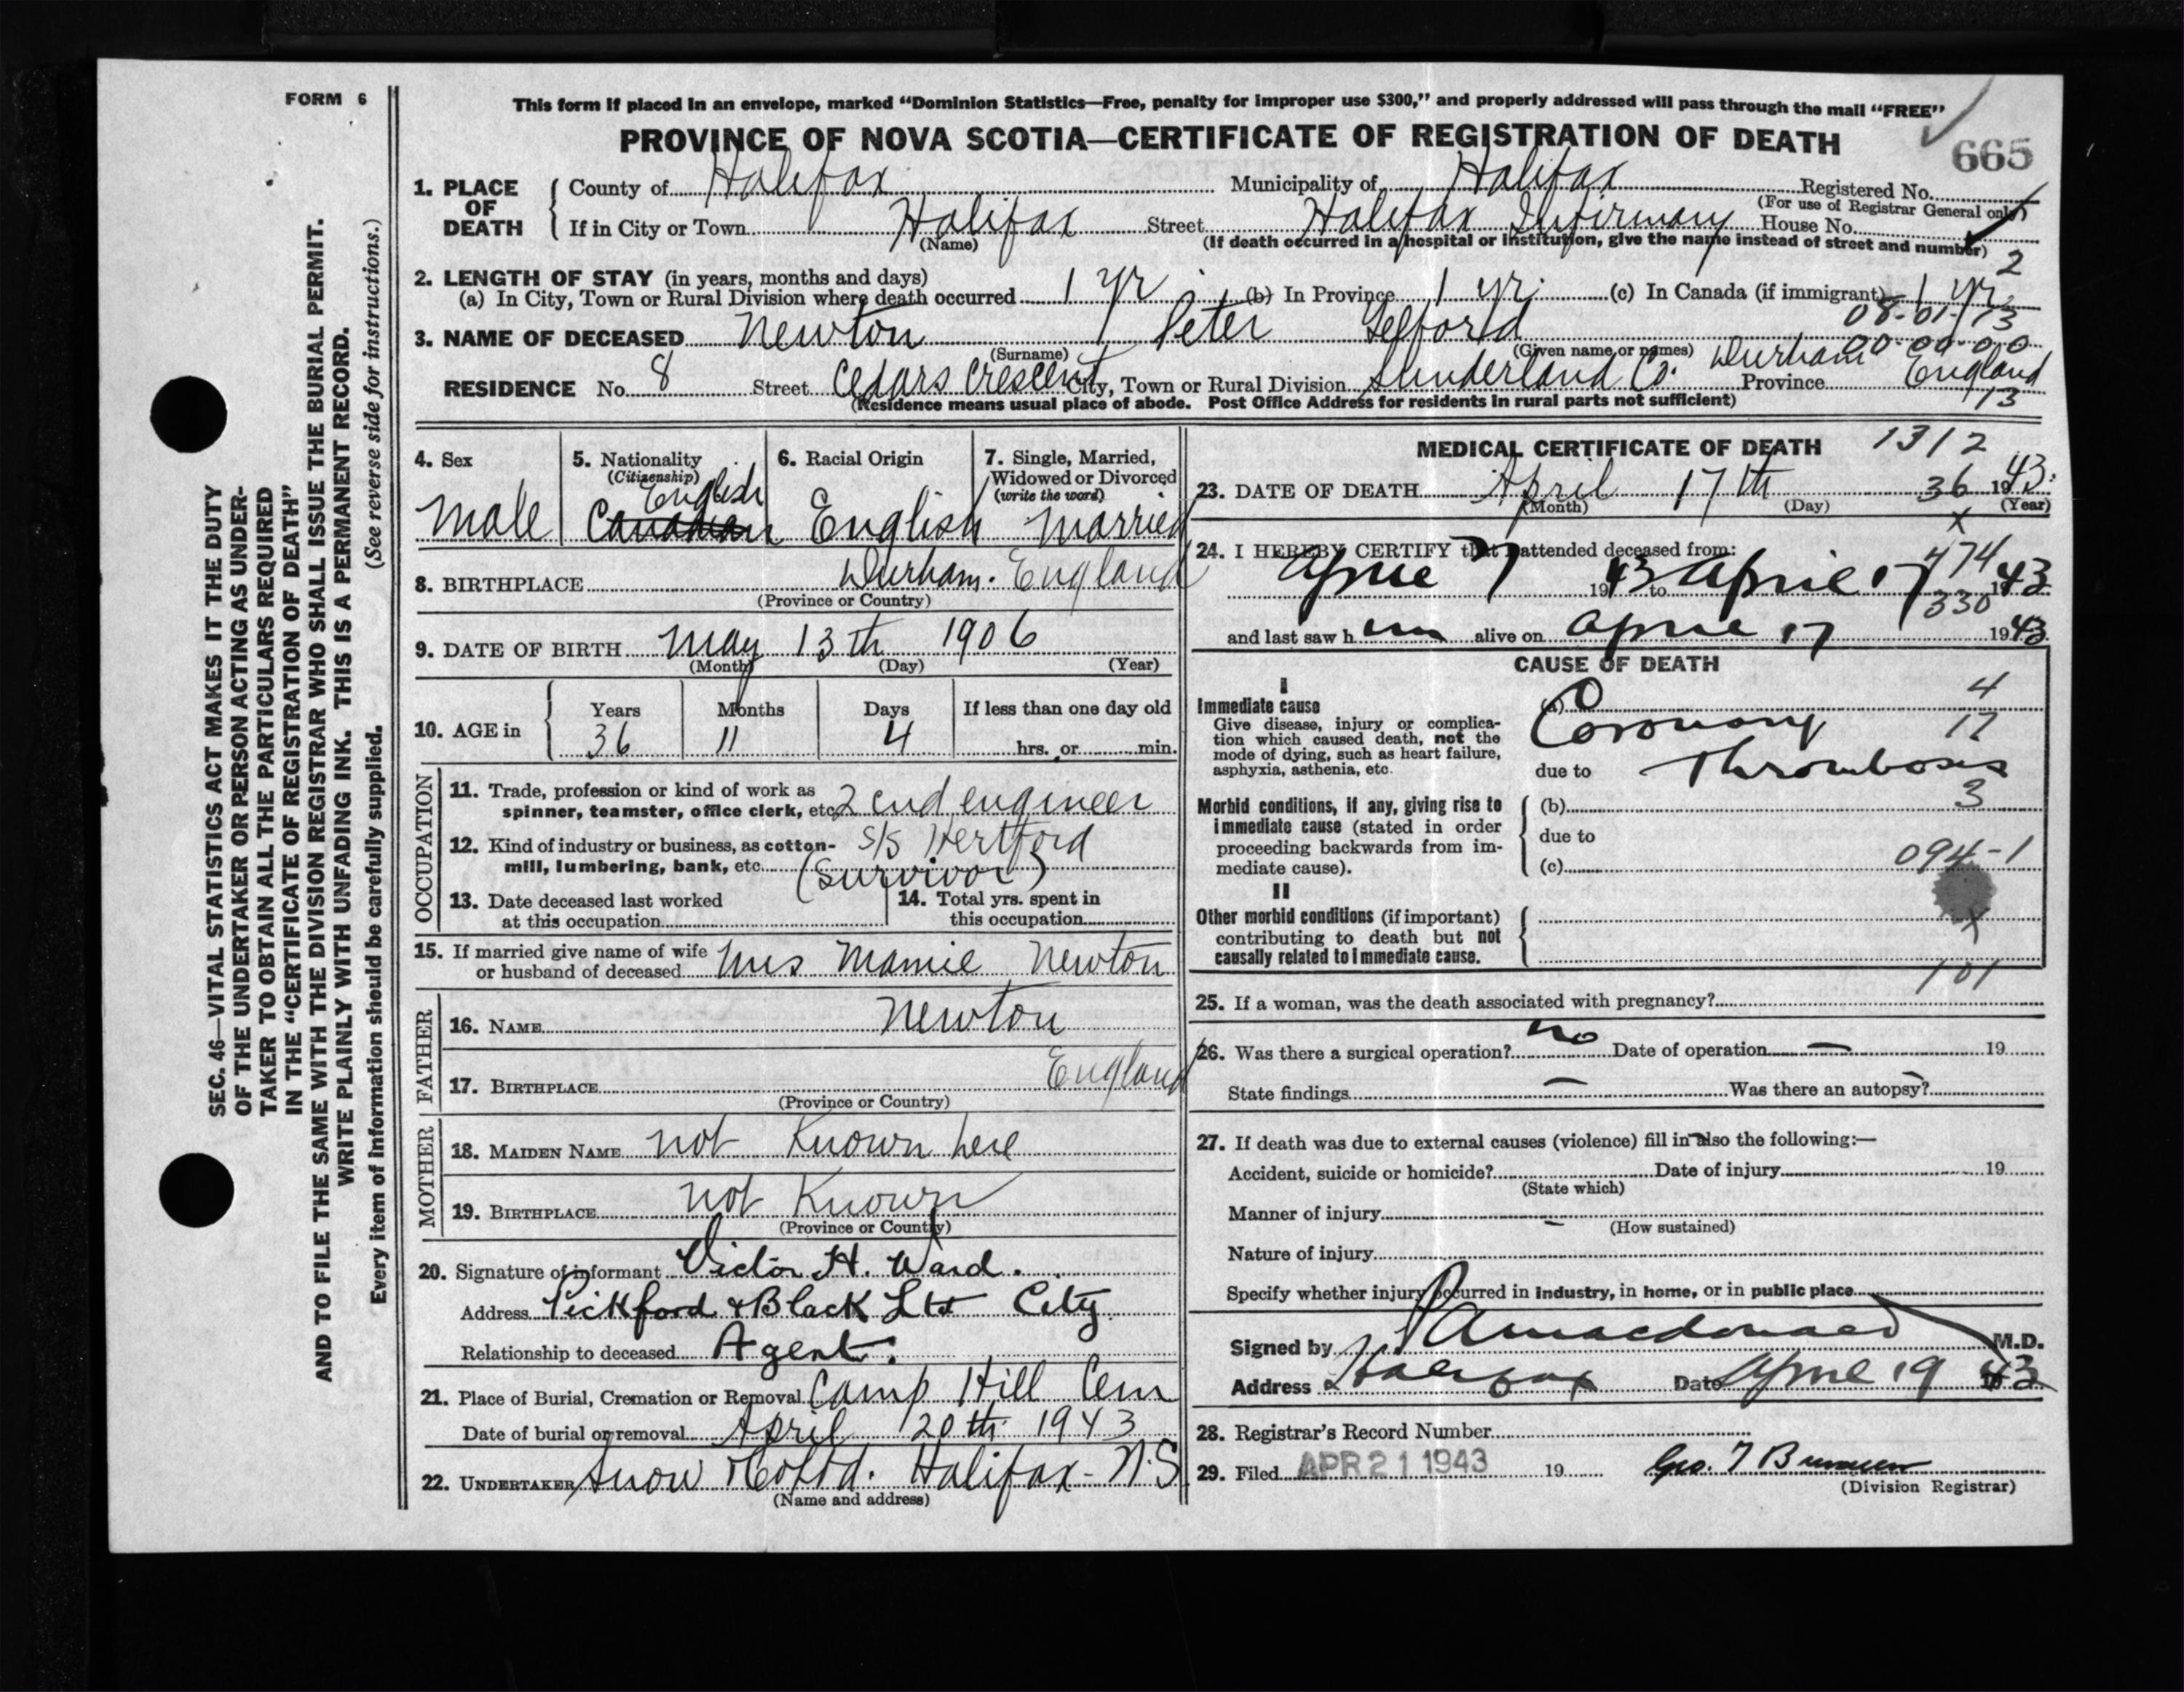 FORM 6
This form if placed in an envelope, marked "Dominion Statistics—Free, penalty for improper use $300," and properly addressed will pass through the mail "FREE"
PROVINCE OF NOVA SCOTIA—CERTIFICATE OF REGISTRATION OF DEATH
665
1. PLACE OF DEATH County of Halifax Municipality of Halifax Registered No.
(For use of Registrar General only)
If in City or Town Halifax Street Halifax Infirmary House No.
(Name) (If death occurred in a hospital or institution, give the name instead of street and number)
2
2. LENGTH OF STAY (in years, months and days)
(a) In City, Town or Rural Division where death occurred 1 yr (b) In Province 1 yr. (c) In Canada (if immigrant) 1 yr
08-01-73
3. NAME OF DECEASED Newton Peter Telford
(Surname) (Given name or names)
00-00-00
RESIDENCE No. 8 Street Cedars Crescent City, Town or Rural Division Sunderland Co. Durham Province England
(Residence means usual place of abode. Post Office Address for residents in rural parts not sufficient)
13
4. Sex 5. Nationality 6. Racial Origin 7. Single, Married,
(Citizenship) Widowed or Divorced
English (write the word)
Male Canadian English Married
8. BIRTHPLACE Durham. England
(Province or Country)
9. DATE OF BIRTH May 13th 1906
(Month) (Day) (Year)
10. AGE in Years Months Days If less than one day old
36 11 4 hrs. or min.
OCCUPATION
11. Trade, profession or kind of work as
spinner, teamster, office clerk, etc. 2end engineer
12. Kind of industry or business, as cotton-
mill, lumbering, bank, etc. S/S Hertford
(Survivor)
13. Date deceased last worked
at this occupation
14. Total yrs. spent in
this occupation
15. If married give name of wife
or husband of deceased Mrs Mamie Newton
FATHER
16. NAME Newton
17. BIRTHPLACE England
(Province or Country)
MOTHER
18. MAIDEN NAME not Known here
19. BIRTHPLACE not Known
(Province or Country)
20. Signature of informant Victor H. Ward.
Address Pickford & Black Ltd City
Relationship to deceased Agent.
21. Place of Burial, Cremation or Removal Camp Hill Cem
Date of burial or removal April 20th 1943
22. UNDERTAKER Snow & Co Ltd. Halifax - N.S
(Name and address)
MEDICAL CERTIFICATE OF DEATH 1312
23. DATE OF DEATH April 17th 36 1943.
(Month) (Day) (Year)
x
24. I HEREBY CERTIFY that I attended deceased from:
474
April 7 1943 to April 17 1943
330
and last saw him alive on April 17 1943
CAUSE OF DEATH
I
Immediate cause
Give disease, injury or complica-
tion which caused death, not the
mode of dying, such as heart failure,
asphyxia, asthenia, etc.
4
(a) Coronary 17
due to Thrombosis
Morbid conditions, if any, giving rise to
immediate cause (stated in order
proceeding backwards from im-
mediate cause).
3
(b)
due to
(c) 094-1
II
Other morbid conditions (if important)
contributing to death but not
causally related to immediate cause.
x
101
25. If a woman, was the death associated with pregnancy?
26. Was there a surgical operation? no Date of operation — 19
State findings — Was there an autopsy? —
27. If death was due to external causes (violence) fill in also the following:—
Accident, suicide or homicide? Date of injury 19
(State which)
Manner of injury
(How sustained)
Nature of injury
Specify whether injury occurred in industry, in home, or in public place
Signed by Macdonald M.D.
Address Halifax Date April 19 1943
28. Registrar's Record Number
29. Filed APR 21 1943 19 Geo. T
(Division Registrar)
SEC. 46—VITAL STATISTICS ACT MAKES IT THE DUTY
OF THE UNDERTAKER OR PERSON ACTING AS UNDER-
TAKER TO OBTAIN ALL THE PARTICULARS REQUIRED
IN THE "CERTIFICATE OF REGISTRATION OF DEATH"
AND TO FILE THE SAME WITH THE DIVISION REGISTRAR WHO SHALL ISSUE THE BURIAL PERMIT.
WRITE PLAINLY WITH UNFADING INK. THIS IS A PERMANENT RECORD.
Every item of information should be carefully supplied. (See reverse side for instructions.)